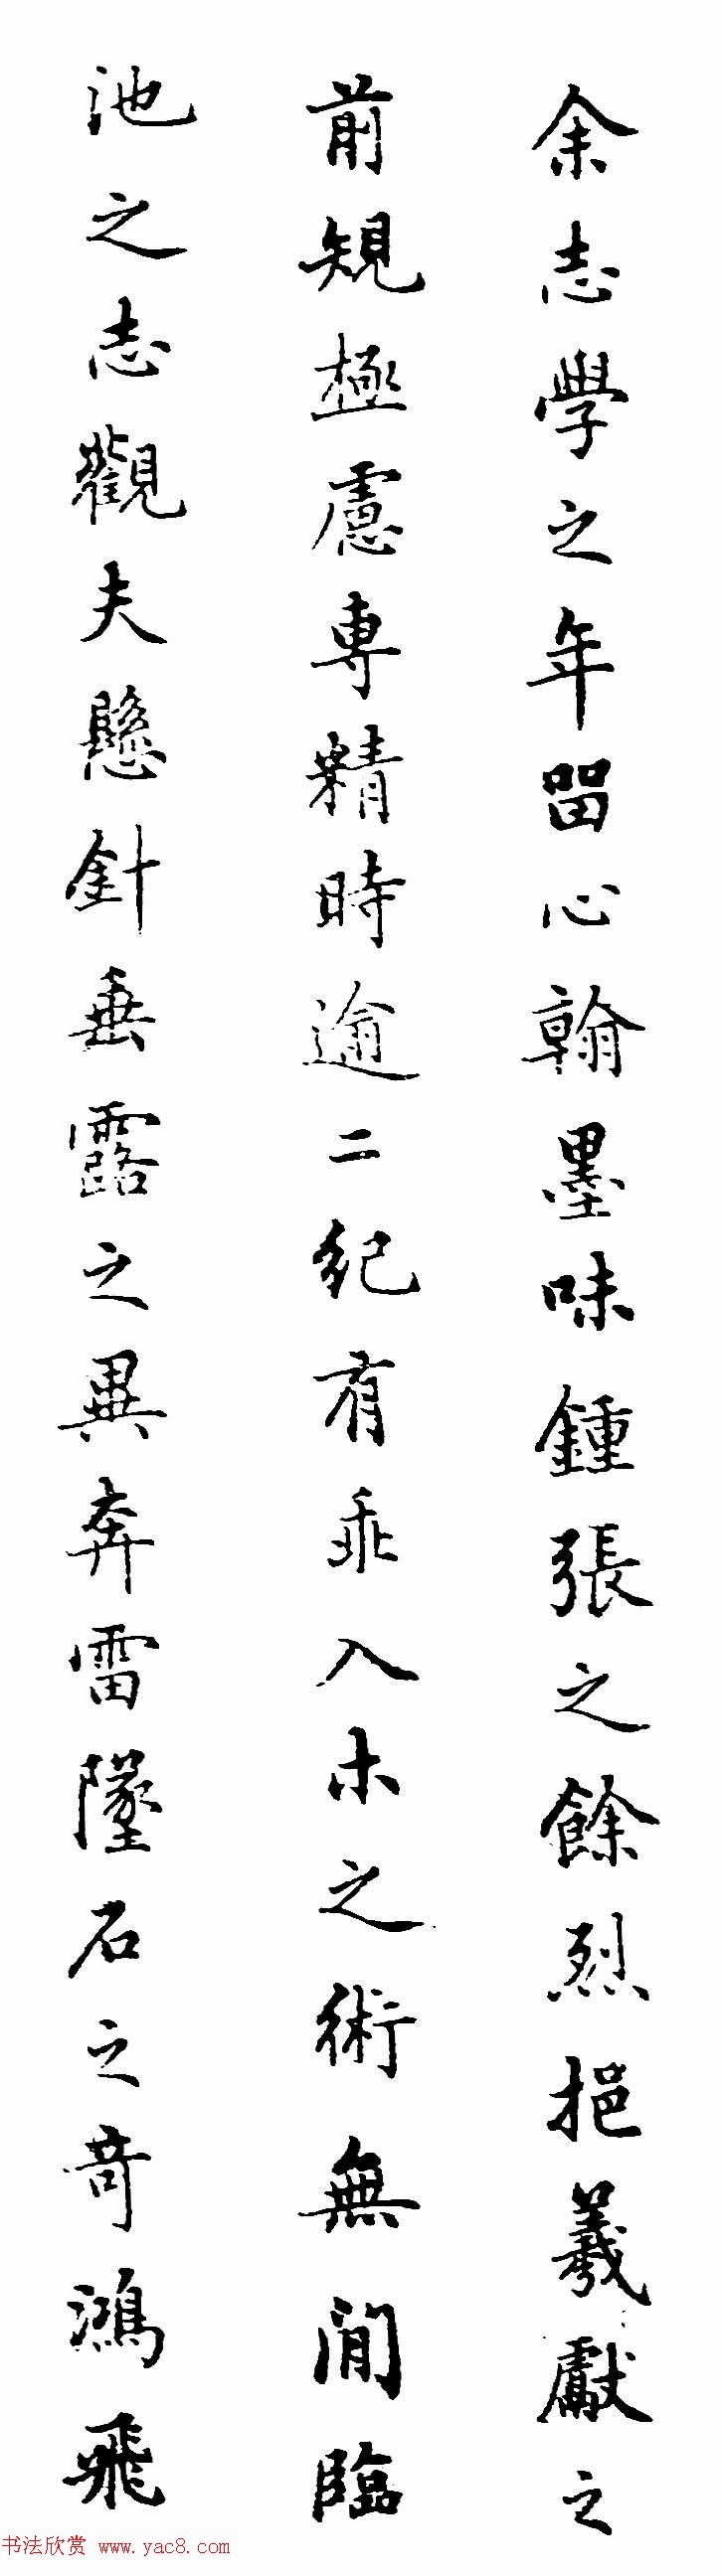 余志學之年留心翰墨味鍾張之餘烈挹羲獻之
前規極慮專精時逾二紀有乖入木之術無間臨
池之志觀夫懸針垂露之異奔雷墜石之奇鴻飛
书法欣赏 www.yac8.com